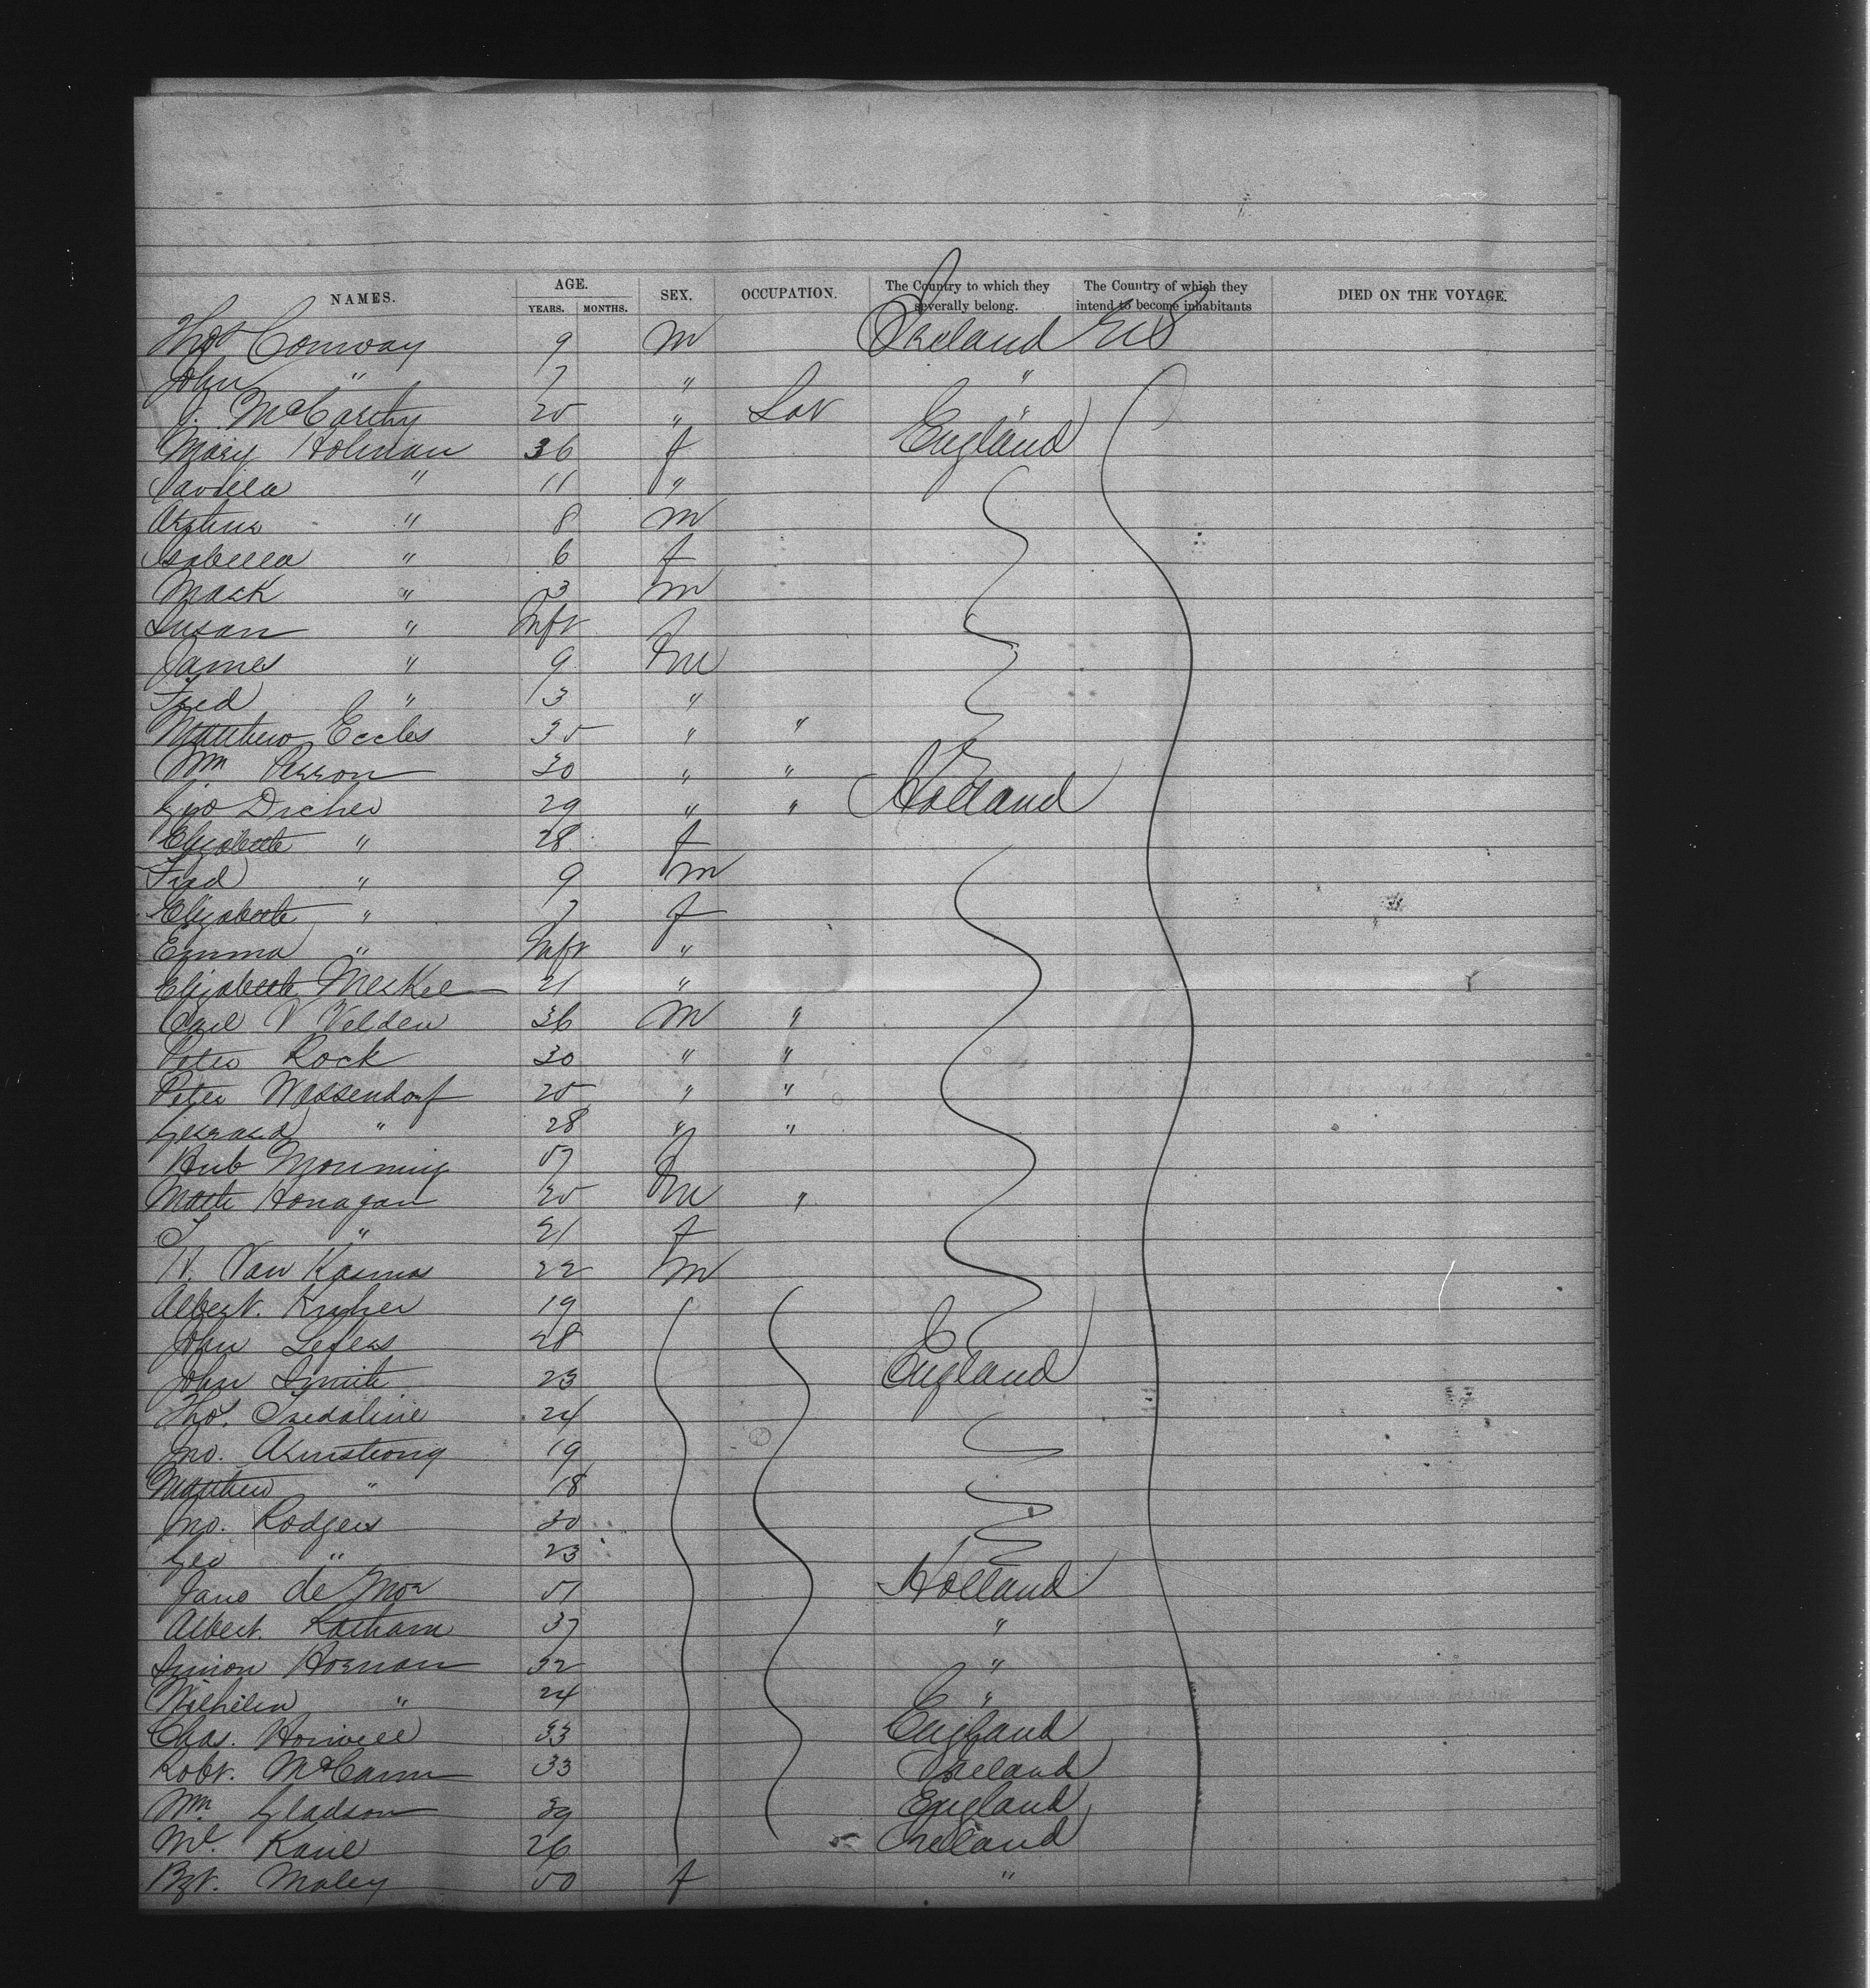 NAMES. AGE. YEARS. MONTHS. SEX. OCCUPATION. The Country to which they severally belong. The Country of which they intend to become inhabitants DIED ON THE VOYAGE.
Thos Conway 9 m Ireland US
John " 7 " "
J. McCarthy 25 " Lab "
Mary Holman 36 f England
" 11 "
Arthur " 8 m
Isabella " 6 f
Mark " 3 m
Susan " Inft f
James " 9 m
Fred " 13 "
Matthew Eccles 35 " "
Wm Perron 30 " "
Geo Dicher 29 " " Holland
Elizabeth " 28 f
Fred " 9 m
Elizabeth " 7 f
Emma " Inft "
Elizabeth Meskee 21 "
Carl V Velden 36 m "
Peter Rock 30 " "
Peter Wassendorf 25 " "
Gerrard " 28 " "
Hub 57 f
Math Honagan 35 m "
T " 21 f
H. Van 22 m
Albert. Kruher 19
John Lefers 28
John Smith 23 England
Tho. Tredaline 24
Jno. Armstrong 19
Matthew " 18
Jno. Rodgers 30
Geo " 23
Jano de Mor 51 Holland
Albert. Ratham 37 "
Simon Hornan 32 "
Wilhelm " 24 "
Chas. Honwell 33 England
Robt. McCann 33 Ireland
Wm. Gladson 39 England
Ml. Kane 26 Ireland
Bgt. Maley 50 f "